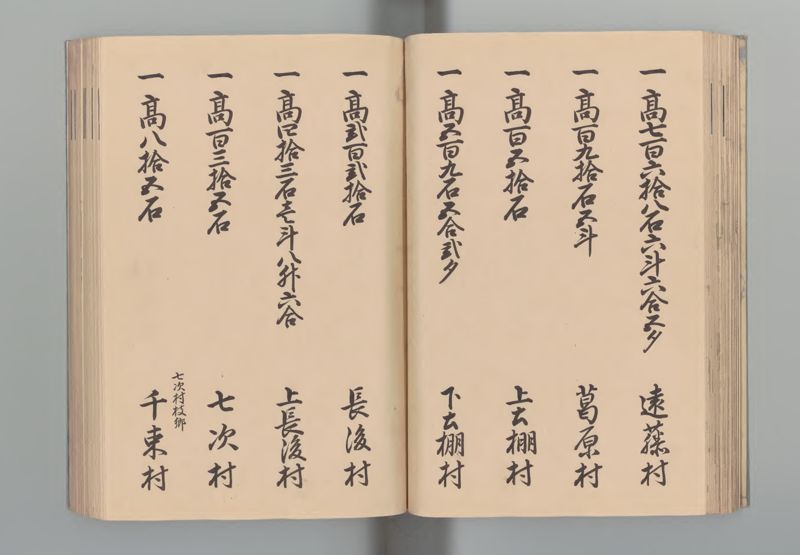 一高七百六拾八石六斗六合五夕 遠藤村
一高百九拾石五斗 葛原村
一高百五拾石 上土棚村
一高五百九石五合弐夕 下土棚村
一高弐百弐拾石 長後村
一高四拾三石壱斗八升六合 上長後村
一高百三拾五石 七次村
七次村枝郷
一高八拾五石 千束村